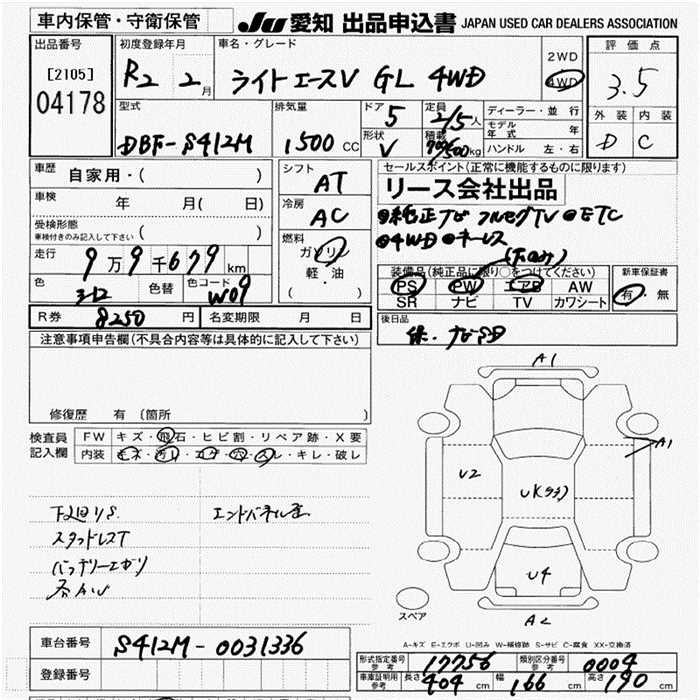 車内保管・守衛保管
JU 愛知 出品申込書 JAPAN USED CAR DEALERS ASSOCIATION
出品番号 初度登録年月 車名・グレード 2WD 評価点
[2105] R2 2月 ライトエースV GL 4WD 4WD 3.5
04178
型式 排気量 ドア 5 定員 2/5人 ディーラー・並行 外装 内装
DBF-S412M 1500 CC 形状 V 積載 kg モデル年式 年 D C
ハンドル 左・右
車歴 自家用・( ) シフト AT セールスポイント(正常に機能するものに限ります)
車検 年 月( 日) 冷房 AC リース会社出品
受検形態 車検付きのみ記入して下さい ( ) 燃料 ガソリン 軽・油 ( )
純正ナビ フルセグTV ETC
4WD キーレス
走行 9万9千679km (下のみ)
色 シロ 色替 色コード W09
装備品(純正品に限り○をつけてください) 新車保証書
PS PW エアB AW 有・無
SR ナビ TV カワシート
R券 8250円 名変期限 月 日 後日品
保・ナビSD
注意事項申告欄(不具合内容等は具体的に記入して下さい)
修復歴 有(箇所
検査員記入欄 FW キズ・飛石・ヒビ割・リペア跡・X要
内装 キズ・汚レ・コゲ・穴・スレ・キレ・破レ
下廻りS エンドパネル歪
スタッドレスT
バッテリーエガリ
A1
A1
U2
UK(ララ)
U4
A2
スペア
A-キズ E-エクボ U-凹み W-補修跡 S-サビ C-腐食 XX-交換済
車台番号 S412M-0031336
登録番号
形式指定番号 参考 17756 類別区分番号 参考 0004
車庫証明用 参考 長さ 404 cm 幅 166 cm 高さ 190 cm